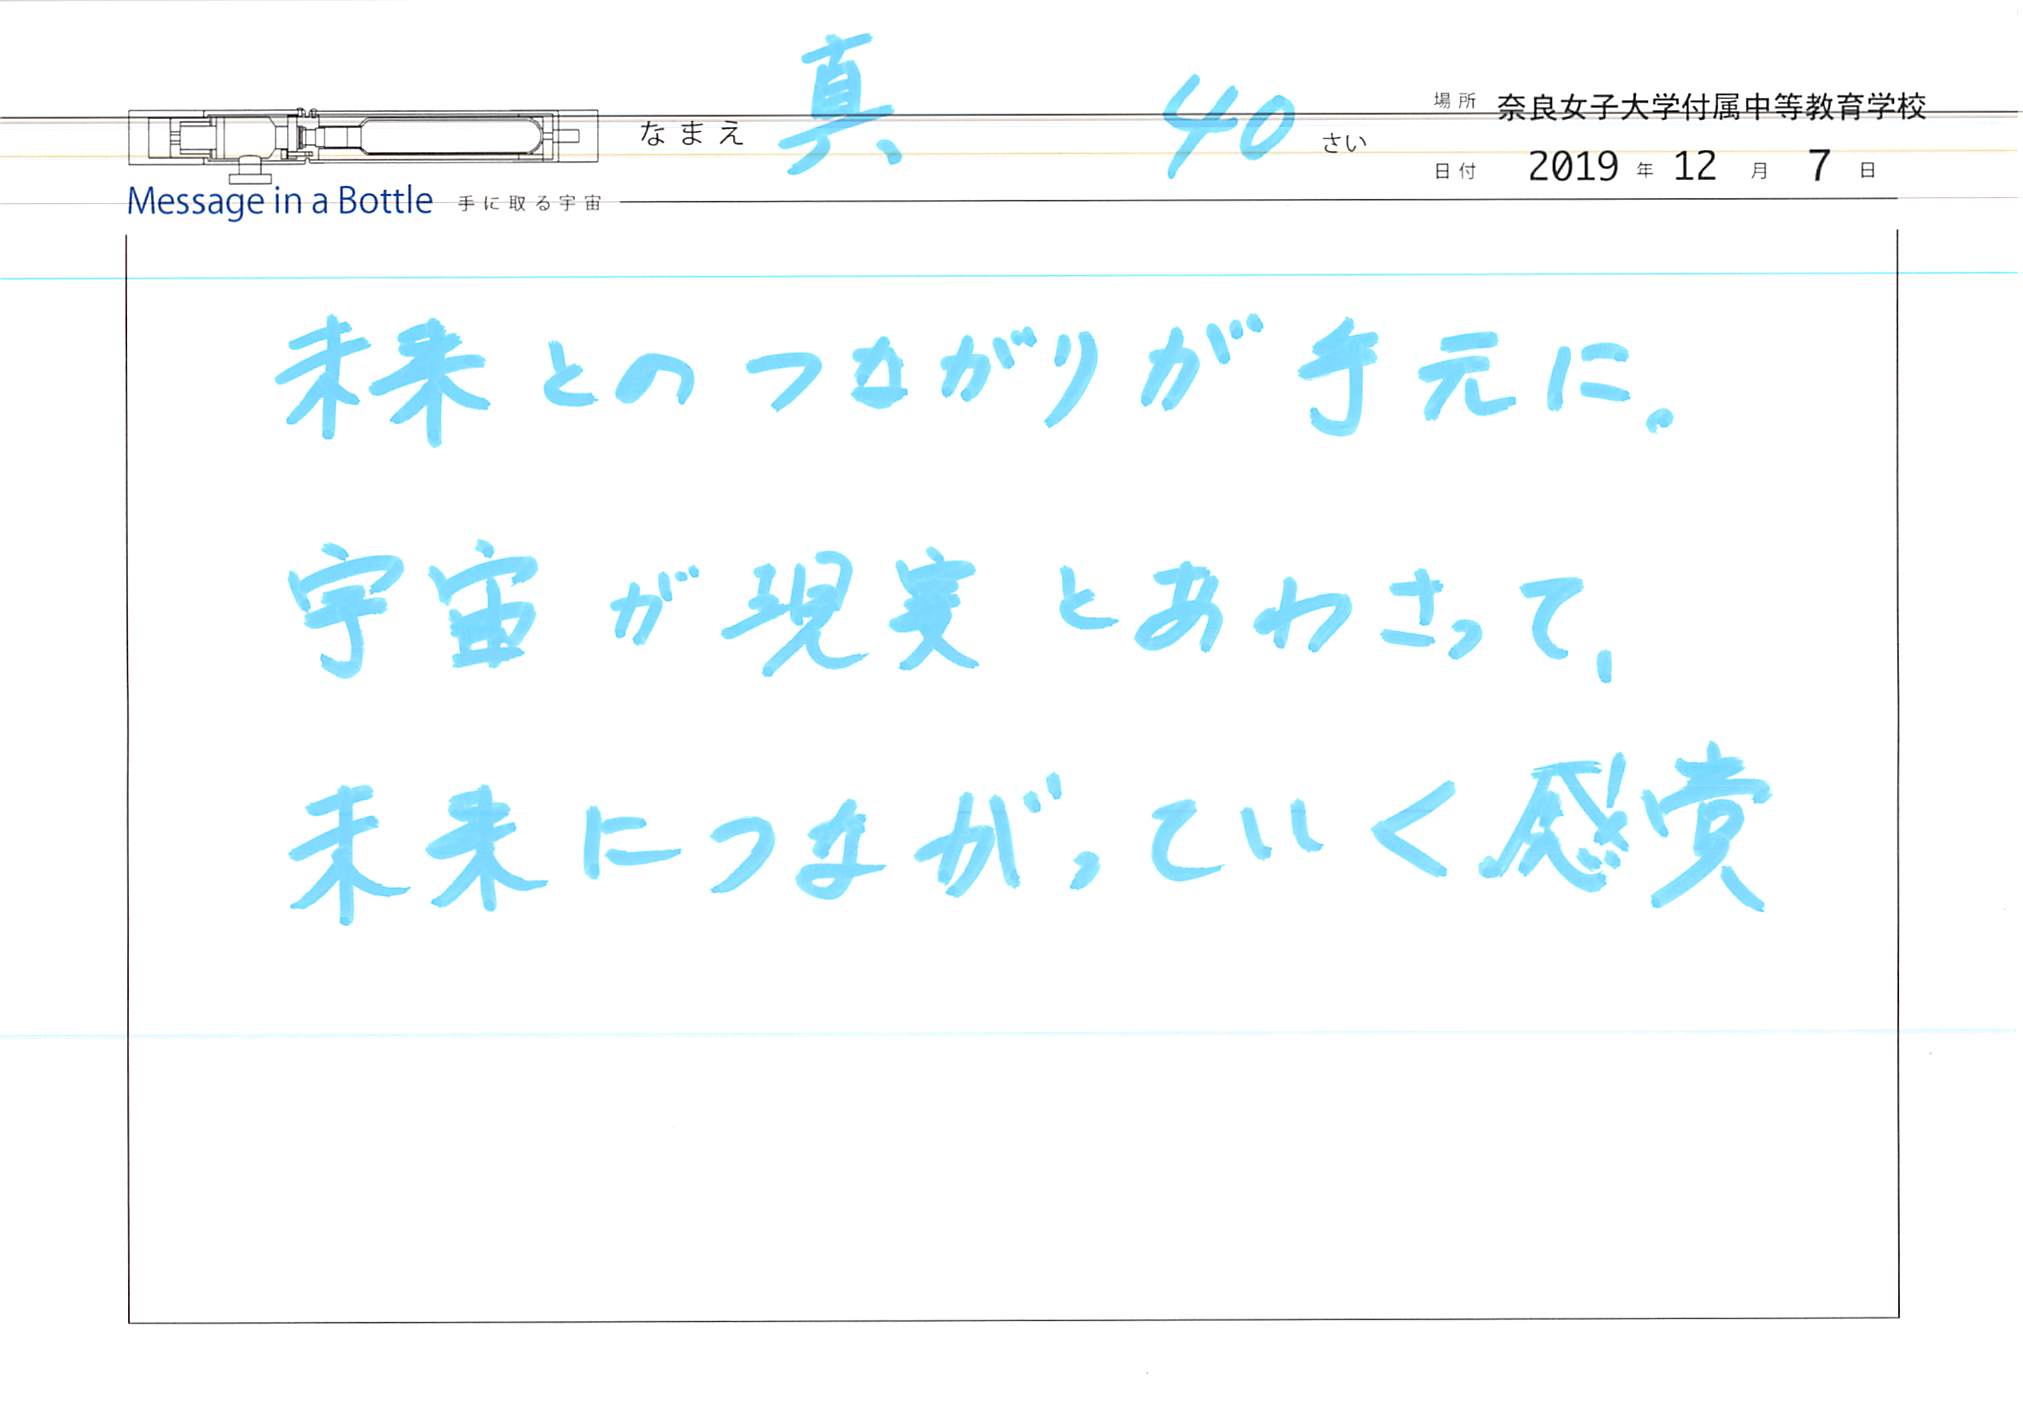 なまえ 真 40 さい
場所 奈良女子大学付属中等教育学校
日付 2019 年 12 月 7 日
Message in a Bottle 手に取る宇宙
未来とのつながりが手元に。
宇宙が現実とあわさって、
未来につながっていく感覚